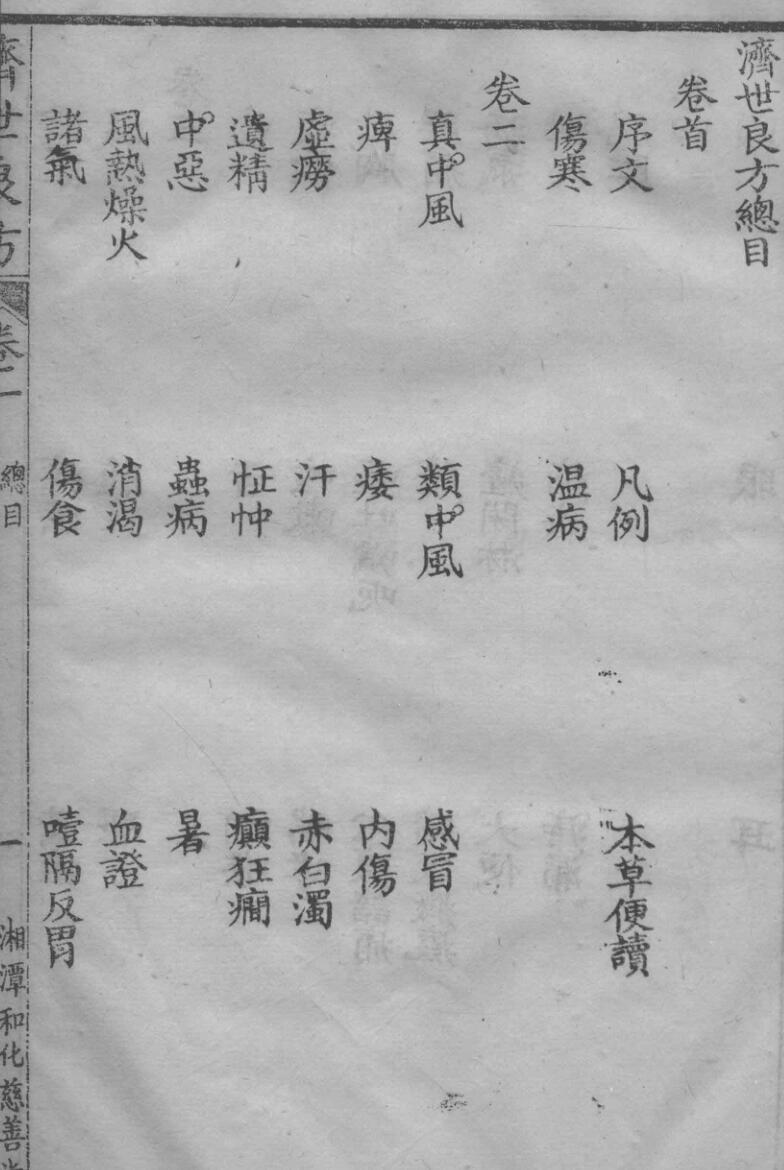 濟世良方總目
卷首
序文 凡例 本草便讀
傷寒 温病
卷二
真中風 類中風 感冒
痺 痿 內傷
虛癆 汗 赤白濁
遺精 怔忡 癲狂癇
中惡 蟲病 暑
風熱燥火 消渴 血證
諸氣 傷食 噎隔反胃
濟世良方 總目 一 湘潭和化慈善